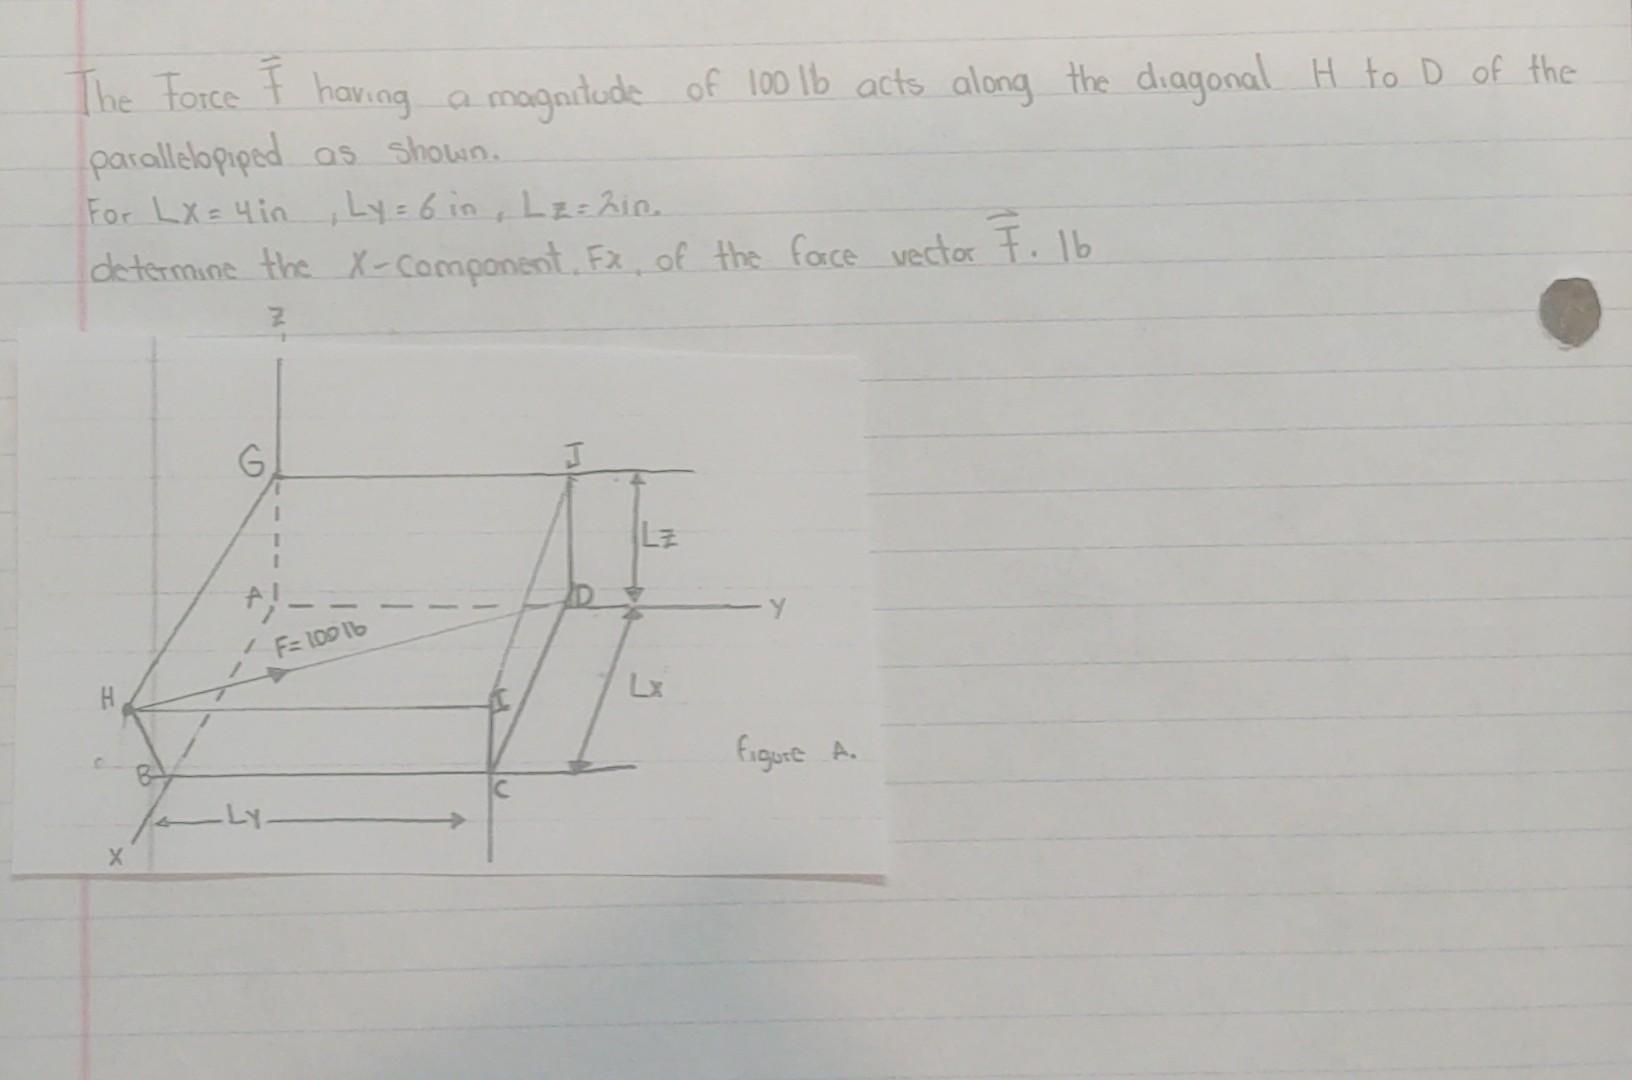 The Force F having a magnitude of 100 lb acts along the diagonal H to D of the
parallelopiped as shown.
For Lx = 4in , Ly = 6 in , Lz = 2in.
determine the x-component, Fx, of the force vector F. lb
Z
G
J
Lz
A
D
Y
F=100 lb
H
I
Lx
Figure A.
B
C
Ly
X